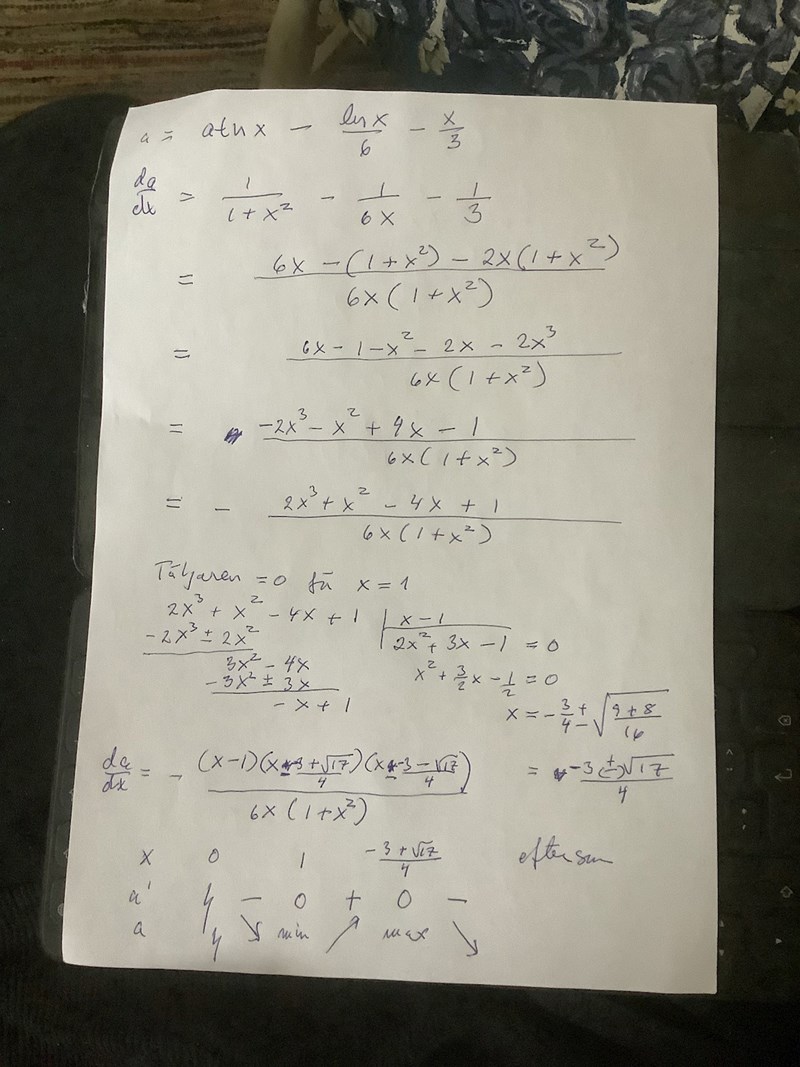 a = atn x − ln x/6 − x/3
da/dx = 1/(1 + x²) − 1/(6x) − 1/3
= (6x − (1 + x²) − 2x(1 + x²))/(6x(1 + x²))
= (6x − 1 − x² − 2x − 2x³)/(6x(1 + x²))
= (−2x³ − x² + 4x − 1)/(6x(1 + x²))
= − (2x³ + x² − 4x + 1)/(6x(1 + x²))
Täljaren = 0 för x = 1
2x³ + x² − 4x + 1 | x − 1
−2x³ ± 2x² 2x² + 3x − 1 = 0
3x² − 4x x² + 3/2 x − 1/2 = 0
−3x² ± 3x
− x + 1 x = −3/4 ± √((9 + 8)/16)
da/dx = − (x − 1)(x − (−3 + √17)/4)(x − (−3 − √17)/4)/(6x(1 + x²)) = (−3 (±) √17)/4
x 0 1 (−3 + √17)/4 eftersom
a' − 0 + 0 −
a ↘ min ↗ max ↘